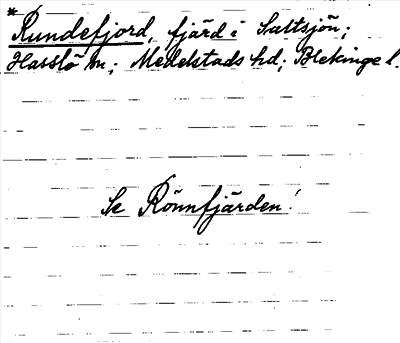 *Rundefjord, fjärd i Saltsjön;
Hasslö sn; Medelstads hd; Blekinge l.
Se Rönnfjärden!